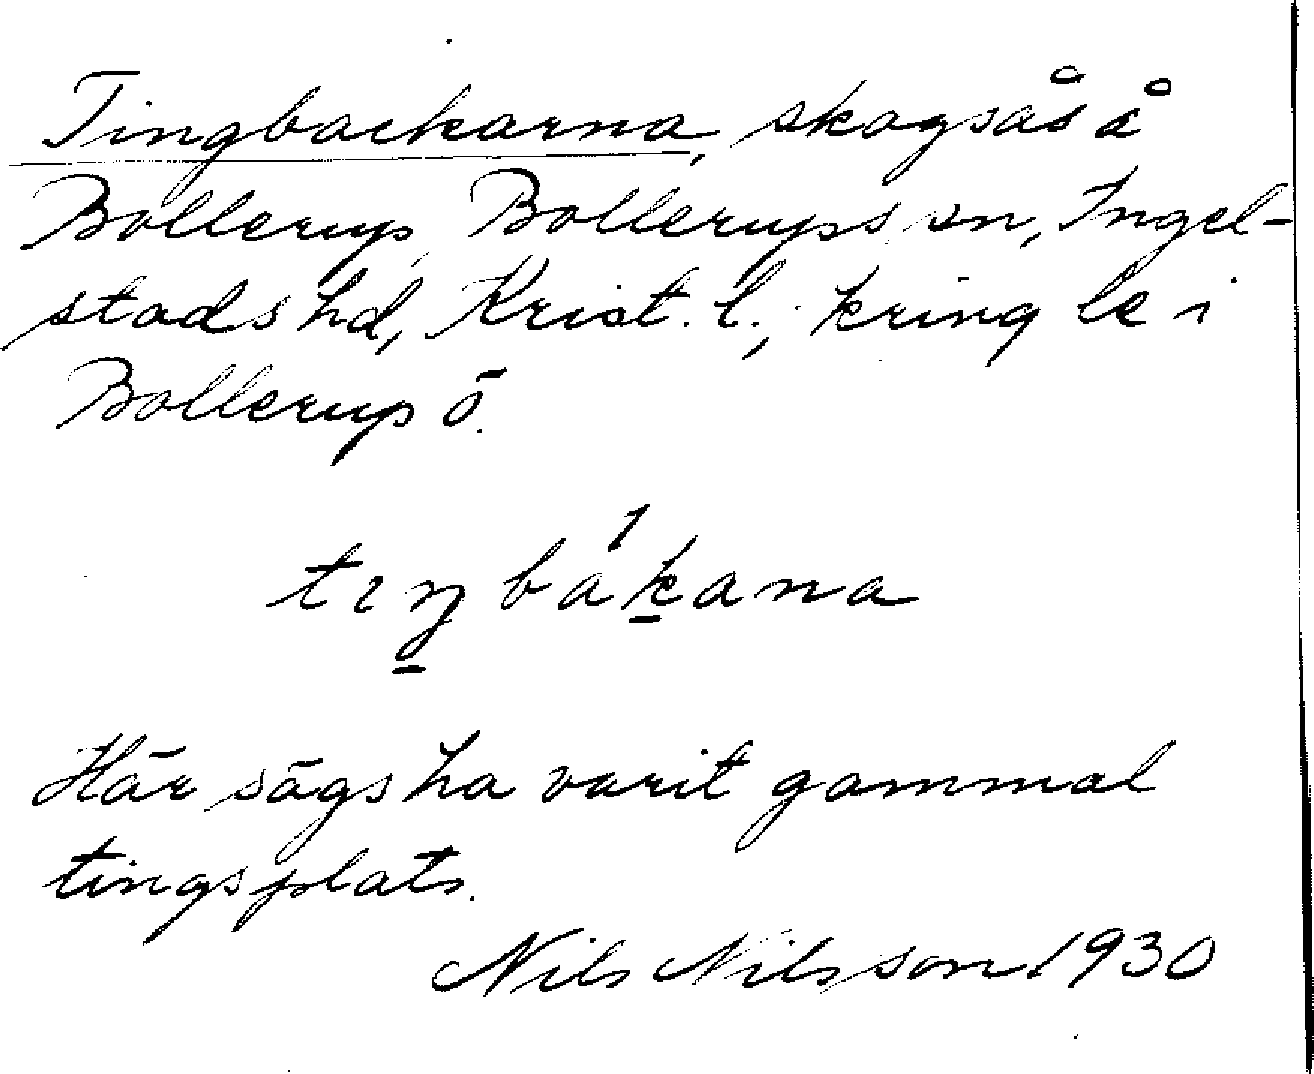 Tingbackarna, skogsås å
Bollerup, Bollerups sn, Ingel-
stads hd, Krist. l.; kring le i
Bollerup ö.
tɪŋbákana
Här sägs ha varit gammal
tingsplats.
Nils Nilsson 1930